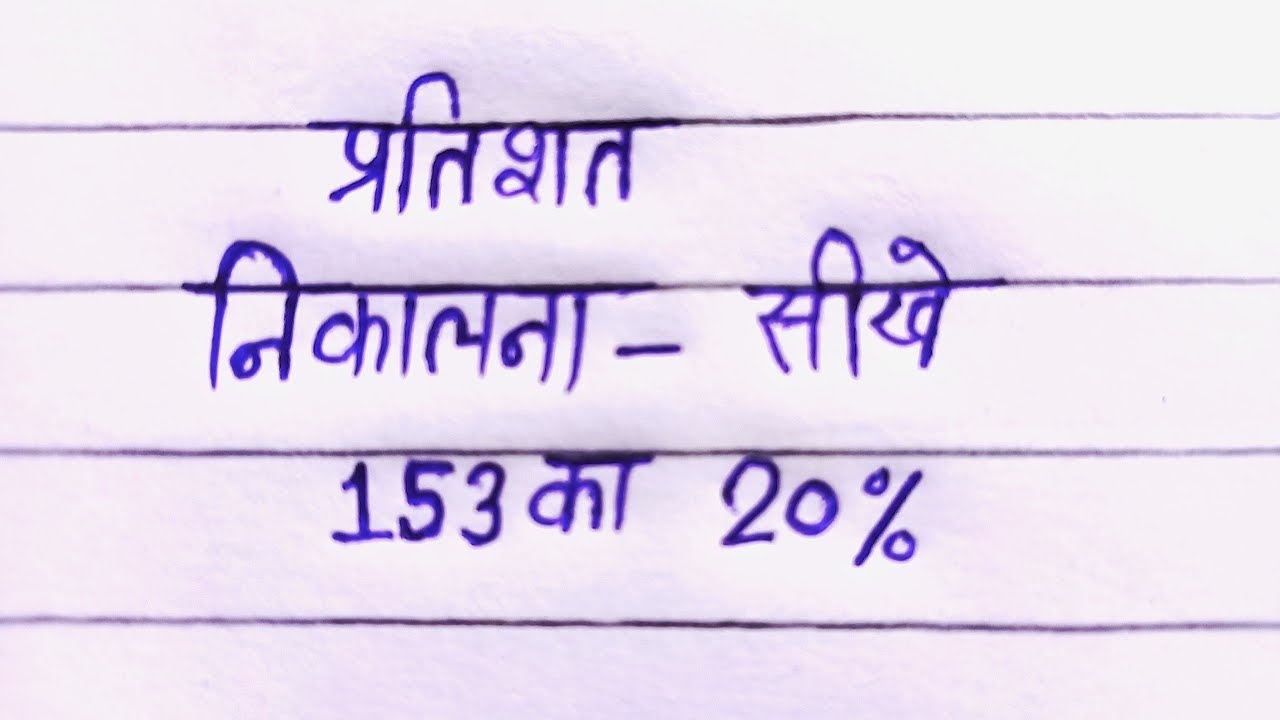 प्रतिशत
निकालना - सीखे
153 का 20%